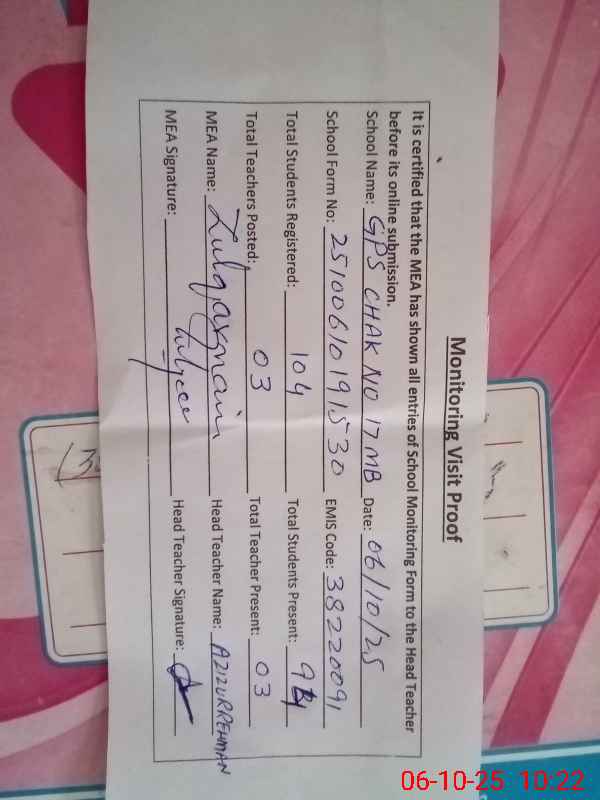 Monitoring Visit Proof
It is certified that the MEA has shown all entries of School Monitoring Form to the Head Teacher
before its online submission.
School Name: GPS CHAK NO 17 MB Date: 06/10/25
School Form No: 2510061019153 0 EMIS Code: 38220091
Total Students Registered: 104 Total Students Present:
Total Teachers Posted: 03 Total Teacher Present: 03
MEA Name: Zulqarnain Head Teacher Name: AZIZURREHMAN
MEA Signature: Head Teacher Signature:
06-10-25 10:22